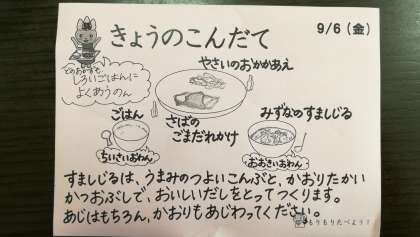 きょうのこんだて
9/6（金）
どのおかずも
しろいごはんに
よくあうのん
やさいのおかかあえ
ごはん
ちいさいおわん
さばの
ごまだれかけ
みずなのすましじる
おおきいおわん
すましじるは、うまみのつよいこんぶと、かおりたかい
かつおぶしで、おいしいだしをとってつくります。
あじはもちろん、かおりもあじわってください。
もりもりたべよう！